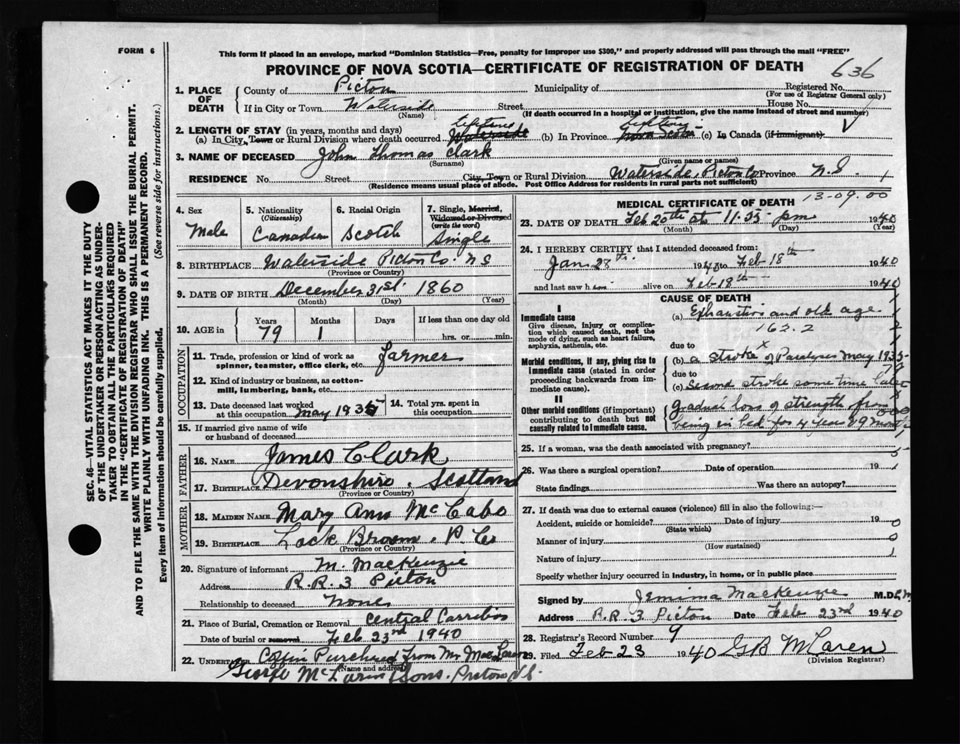 FORM 6
This form if placed in an envelope, marked "Dominion Statistics—Free, penalty for improper use $300," and properly addressed will pass through the mail "FREE"
PROVINCE OF NOVA SCOTIA—CERTIFICATE OF REGISTRATION OF DEATH
636
SEC. 46—VITAL STATISTICS ACT MAKES IT THE DUTY
OF THE UNDERTAKER OR PERSON ACTING AS UNDER-
TAKER TO OBTAIN ALL THE PARTICULARS REQUIRED
IN THE "CERTIFICATE OF REGISTRATION OF DEATH"
AND TO FILE THE SAME WITH THE DIVISION REGISTRAR WHO SHALL ISSUE THE BURIAL PERMIT.
WRITE PLAINLY WITH UNFADING INK. THIS IS A PERMANENT RECORD.
Every item of information should be carefully supplied. (See reverse side for instructions.)
1. PLACE OF DEATH
County of Picton Municipality of Registered No.
(For use of Registrar General only)
If in City or Town Waterside Street House No.
(Name) (If death occurred in a hospital or institution, give the name instead of street and number)
2. LENGTH OF STAY (in years, months and days) lifetime lifetime
(a) In City, Town or Rural Division where death occurred Waterside (b) In Province Nova Scotia (c) In Canada (if immigrant) √
3. NAME OF DECEASED John Thomas Clark
(Surname) (Given name or names)
RESIDENCE No. Street City, Town or Rural Division Waterside, Picton Co Province N.S. 1
(Residence means usual place of abode. Post Office Address for residents in rural parts not sufficient)
4. Sex Male
5. Nationality (Citizenship) Canadian
6. Racial Origin Scotch
7. Single, Married, Widowed or Divorced (write the word) Single
8. BIRTHPLACE Waterside Picton Co. N S
(Province or Country)
9. DATE OF BIRTH December 31st. 1860
(Month) (Day) (Year)
10. AGE in Years 79 Months 1 Days If less than one day old hrs. or min.
OCCUPATION
11. Trade, profession or kind of work as spinner, teamster, office clerk, etc. farmer
12. Kind of industry or business, as cotton-mill, lumbering, bank, etc.
13. Date deceased last worked at this occupation May 1935
14. Total yrs. spent in this occupation
15. If married give name of wife or husband of deceased
FATHER
16. NAME James Clark
17. BIRTHPLACE Devonshire, Scotland
(Province or Country)
MOTHER
18. MAIDEN NAME Mary Ann McCabe
19. BIRTHPLACE Lock Broom. P Co
(Province or Country)
20. Signature of informant M. MacKenzie
Address R.R. 3 Picton
Relationship to deceased None
21. Place of Burial, Cremation or Removal Central Carribou
Date of burial or removal Feb 23rd 1940
22. UNDERTAKER Coffin Purchased from Mr MacLaren
(Name and address)
George McLaren Sons. Picton N.S.
13-09.00
MEDICAL CERTIFICATE OF DEATH
23. DATE OF DEATH Feb 20th at 11.35 pm 1940
(Month) (Day) (Year)
24. I HEREBY CERTIFY that I attended deceased from:
Jan. 28th 1940 to Feb-18th 1940
and last saw h im alive on Feb-18th 1940
CAUSE OF DEATH
I
Immediate cause
Give disease, injury or complication which caused death, not the mode of dying, such as heart failure, asphyxia, asthenia, etc.
(a) Exhaustion and old age
162.2
due to
Morbid conditions, if any, giving rise to immediate cause (stated in order proceeding backwards from immediate cause).
(b) a stroke of Paralyses May 1935
due to
(c) Second stroke some time later
II
Other morbid conditions (if important) contributing to death but not causally related to immediate cause.
gradual loss of strength from
being in bed for 4 years & 9 months
25. If a woman, was the death associated with pregnancy?
26. Was there a surgical operation? Date of operation 19
State findings Was there an autopsy?
27. If death was due to external causes (violence) fill in also the following:—
Accident, suicide or homicide? Date of injury 19
(State which)
Manner of injury
(How sustained)
Nature of injury
Specify whether injury occurred in industry, in home, or in public place
Signed by Jemima MacKenzie M.D.C.M
Address R.R. 3 Picton Date Feb 23rd 1940
28. Registrar's Record Number 9
29. Filed Feb-23 1940 GB McLaren
(Division Registrar)